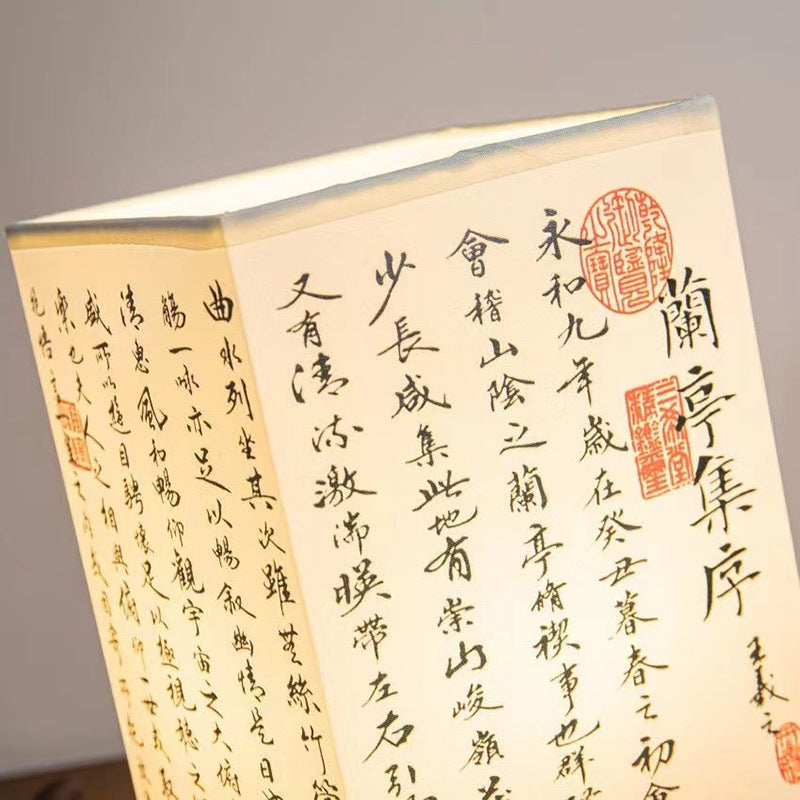 蘭亭集序
王羲之
乾隆御覽之寶
三希堂精鑑璽
永和九年歲在癸丑暮春之初會
會稽山陰之蘭亭脩禊事也群
少長咸集此地有崇山峻嶺
又有清流激湍暎帶左右引
曲水列坐其次雖無絲竹管
觴一咏亦足以暢敘幽情是日
清惠風和暢仰觀宇宙之大俯
盛所以遊目騁懷足以極視聽之
樂也夫人之相與俯仰一世或取
抱悟言一室之內或因寄所託